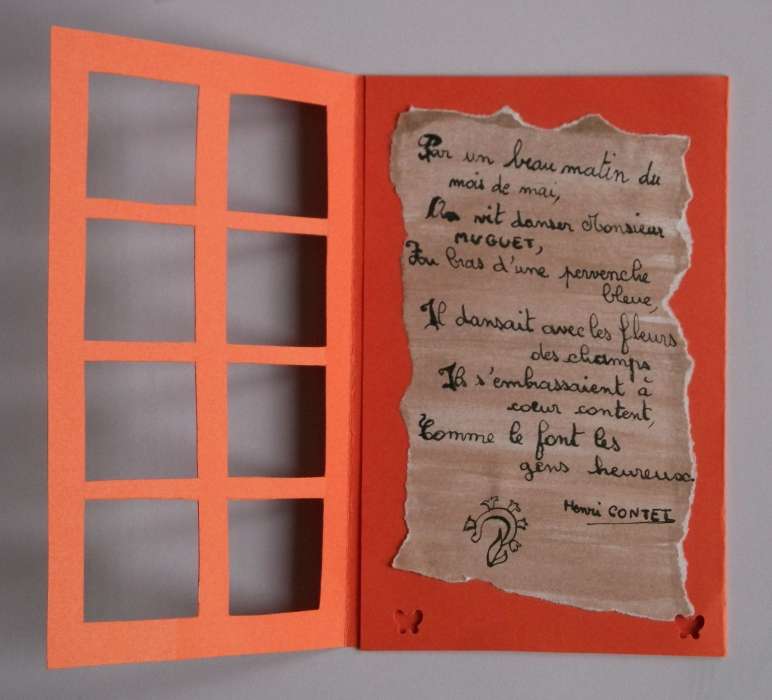 Par un beau matin du
mois de mai,
On vit danser Monsieur
MUGUET,
Au bras d'une pervenche
bleue,
Il dansait avec les fleurs
des champs
Ils s'embrassaient à
cœur content,
Comme le font les
gens heureux.
Henri CONTET